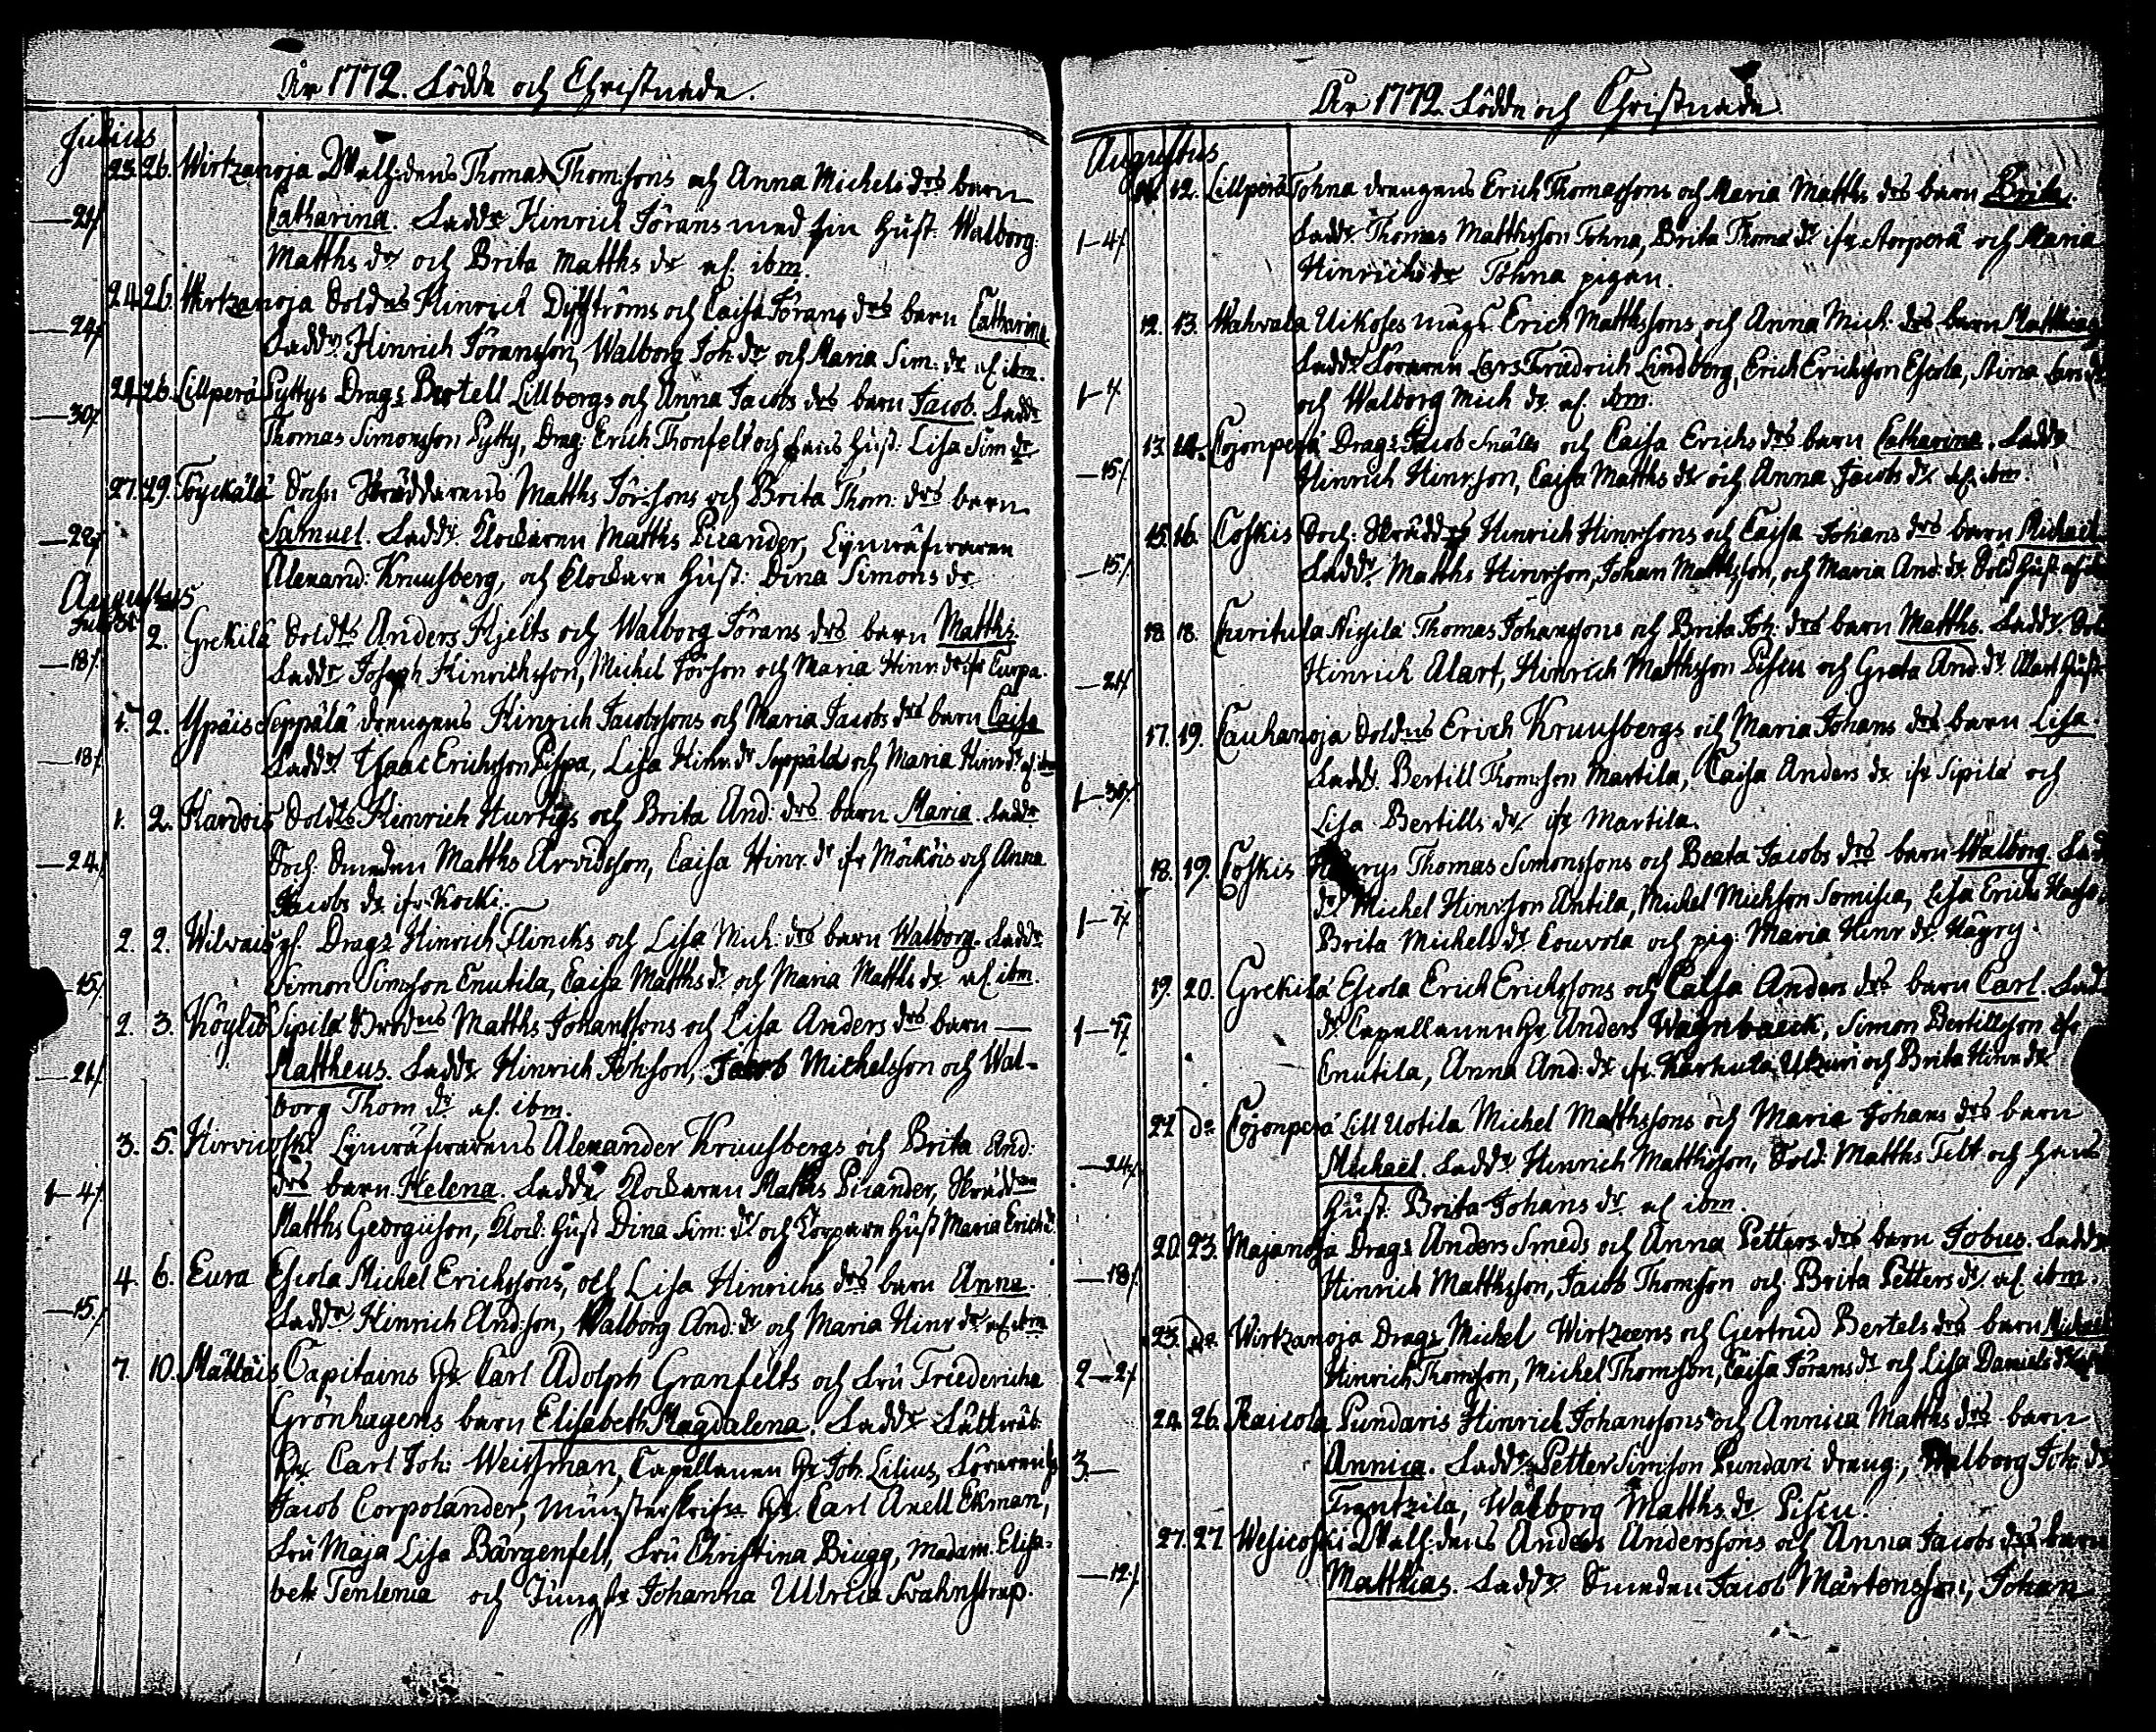 År 1772. Födde och Christnade.
Julius
23. 26. Wirtzanoja Thomas Thomssons och Anna Michels drs barn
— 27/. Catharina. Fadd: Hinrich Jörans med sin Hust: Walborg
Matths dr och Brita Matths dr af ibm.
24. 26. Wirtzanoja Sold:ns Hinrich och Caisa Jörans drs barn Catharina
— 24/. Fadd: Hinrich Jöransson, Walborg Joh: dr och Maria Sim: dr af ibm.
24. 26. Lillperä Pyttys Drag:s Bertell Lillbergs och Anna Jacobs drs barn Jacob. Fadd:
— 30/. Thomas Simonsson Pytty, Drag: Erich Thonfelt och hans Hust: Lisa Sim dr
27. 29. Töyckälä Sochn Skräddarens Matths Jörssons och Brita Thom: drs barn
— 22/. Samuel. Fadd: Klockaren Matths Picander,
Alexand: Kruusberg, och Klockare Hust: Dina Simons dr
Augustus
Juli 31 2. Grekilä Sold:ts Anders Hjelts och Walborg Jörans drs barn Matths.
— 18/. Fadd: Joseph Hinrichsson, Michel Jörsson och Maria Hinr: dr ifr Curpa.
1. 2. Ypäis Seppälä drengens Hinrich Jacobssons och Maria Jacobs drs barn Caisa
— 18/. Fadd: Isaac Ericksson Pispa, Lisa Hinr: dr Seppälä och Maria Hinr dr af ibm
1. 2. Kardois Sold:ts Hinrich Hurtigs och Brita And: drs barn Maria Fadd:
— 24/. Soch: Smeden Matths Arvidsson, Caisa Hinr: dr ifr Möcköis och Anna
Jacobs dr ifr Kocki.
2. 2. Wilvais gl. Drag:s Hinrich Flincks och Lisa Mich: drs barn Walborg. Fadd:
— 15/. Simon Simsson Cnutila, Caisa Matths dr och Maria Matths dr af ibm.
2. 3. Köyliö Sipilä Matths Johanssons och Lisa Anders drs barn —
— 21/. Mattheus. Fadd: Hinrich Johsson, Jacob Michelsson och Wal-
borg Thom dr af ibm.
3. 5. Hirvicoski Alexander Kruusbergs och Brita And:
1— 4/. drs barn Helena. Fadd: Klockaren Matths Picander,
Matths Georgiison, Klock: Hust Dina Sim: dr och Torpare Hust Maria Erich d.
4. 6. Eura Escola Michel Erichssons, och Lisa Hinrichs drs barn Anna.
— 15/. Fadd: Hinrich Andsson, Walborg And: dr och Maria Hinr dr af ibm
7. 10. Mältäis Capitains Hr Carl Adolph Granfelts och Fru Friedericha
Grönhagens barn Elisabeth Magdalena. Fadd:
Hr Carl Joh: Weissman, Capellanen Hr Joh. Lilius,
Jacob Corpolander, Münsterskrifn Hr Carl Axell Ekman,
Fru Maja Lisa Bärgenfelt, Fru Christina Biugg, Madam Elisa-
beth Tenlenia och Jungfr Johanna Ullrica
År 1772. Födde och Christnade.
Augustus
12. Lillperä Tohna drengens Erich Thomassons och Maria Matths drs barn Brita.
1— 4/. Fadd: Thomas Matthsson Tohna, Brita Thoms dr ifr Storperä och Maria
Hinrichs dr Tohna pigan.
12. 13. Wahvala Uikoses mågs Erich Matthssons och Anna Mich: drs barn Matthias
1— 4. Fadd: Lars Friedrich Lindborg, Erich Erichsson Escola, Stina
och Walborg Mich dr af ibm.
13. 14. Cojonperä Drag:s Jacob Snälls och Caisa Erichs drs barn Catharina. Fadd:
— 15/. Hinrich Hinrsson, Caisa Matths dr och Anna Jacobs dr af ibm.
15. 16. Coskis Soch: Skrädd Hinrich Hinrssons och Caisa Johans drs barn Michael
— 15/. Fadd: Matths Hinrsson, Johan Matthsson, och Maria And: dr Sold Hust
18. 18. Curitula Nissilä Thomas Johanssons och Brita Joh: drs barn Matths. Fadd:
— 21/. Hinrich Alart, Hinrich Matthsson Piscu och Greta And: dr Alart Hust
17. 19. Cauhanoja Sold:ns Erich Kruusbergs och Maria Johans drs barn Lisa.
1— 30/. Fadd: Bertill Thomsson Martila, Caisa Anders dr ifr Sipilä och
Lisa Bertills dr ifr Martila.
18. 19. Coskis Thomas Simonssons och Beata Jacobs drs barn Walborg. Fad
1— 7/. dr Michel Hinrsson Antila, Michel Michsson Lisa Erichs
Brita Michels dr Couvola och pig: Maria Hinr dr Hägry.
19. 20. Grekilä Escola Erich Erichssons och Caisa Anders drs barn Carl. Fad
1— 7/. dr Capellanen Hr Anders Wegnbaeck, Simon Bertillsson ifr
Cnutila, Anna And: dr ifr Karhula och Brita Hinr dr
22 do Cojonperä Lill Uotila Michel Matthssons och Maria Johans drs barn
— 24/. Michaël. Fadd: Hinrich Matthsson, Sold: Matths Tilt och hans
Hust: Brita Johans dr af ibm.
20. 23. Majanoja Drag:s Anders Smeds och Anna Petters drs barn Jobus. Fadd:
— 18/. Hinrich Matthsson, Jacob Thomsson och Brita Petters dr af ibm.
23. do Wirtzanoja Drag:s Michel Wirtzeens och Gertrud Bertels drs barn Michael
2— 2/. Hinrich Thomsson, Michel Thomsson, Caisa Jörans dr och Lisa Daniels dr
24. 26. Raicola Pundaris Hinrich Johanssons och Annica Matths drs barn
3. — Annica. Fadd: Petter Simsson Pundari dreng:, Walborg Joh: dr
Frantzila, Walborg Matths dr Piscu.
27. 27 Wesicoski Anders Anderssons och Anna Jacobs drs barn
— 12/. Matthias. Fadd: Smeden Jacob Mårtensson, Johan